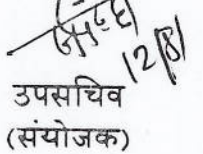 12/8/
उपसचिव
(संयोजक)